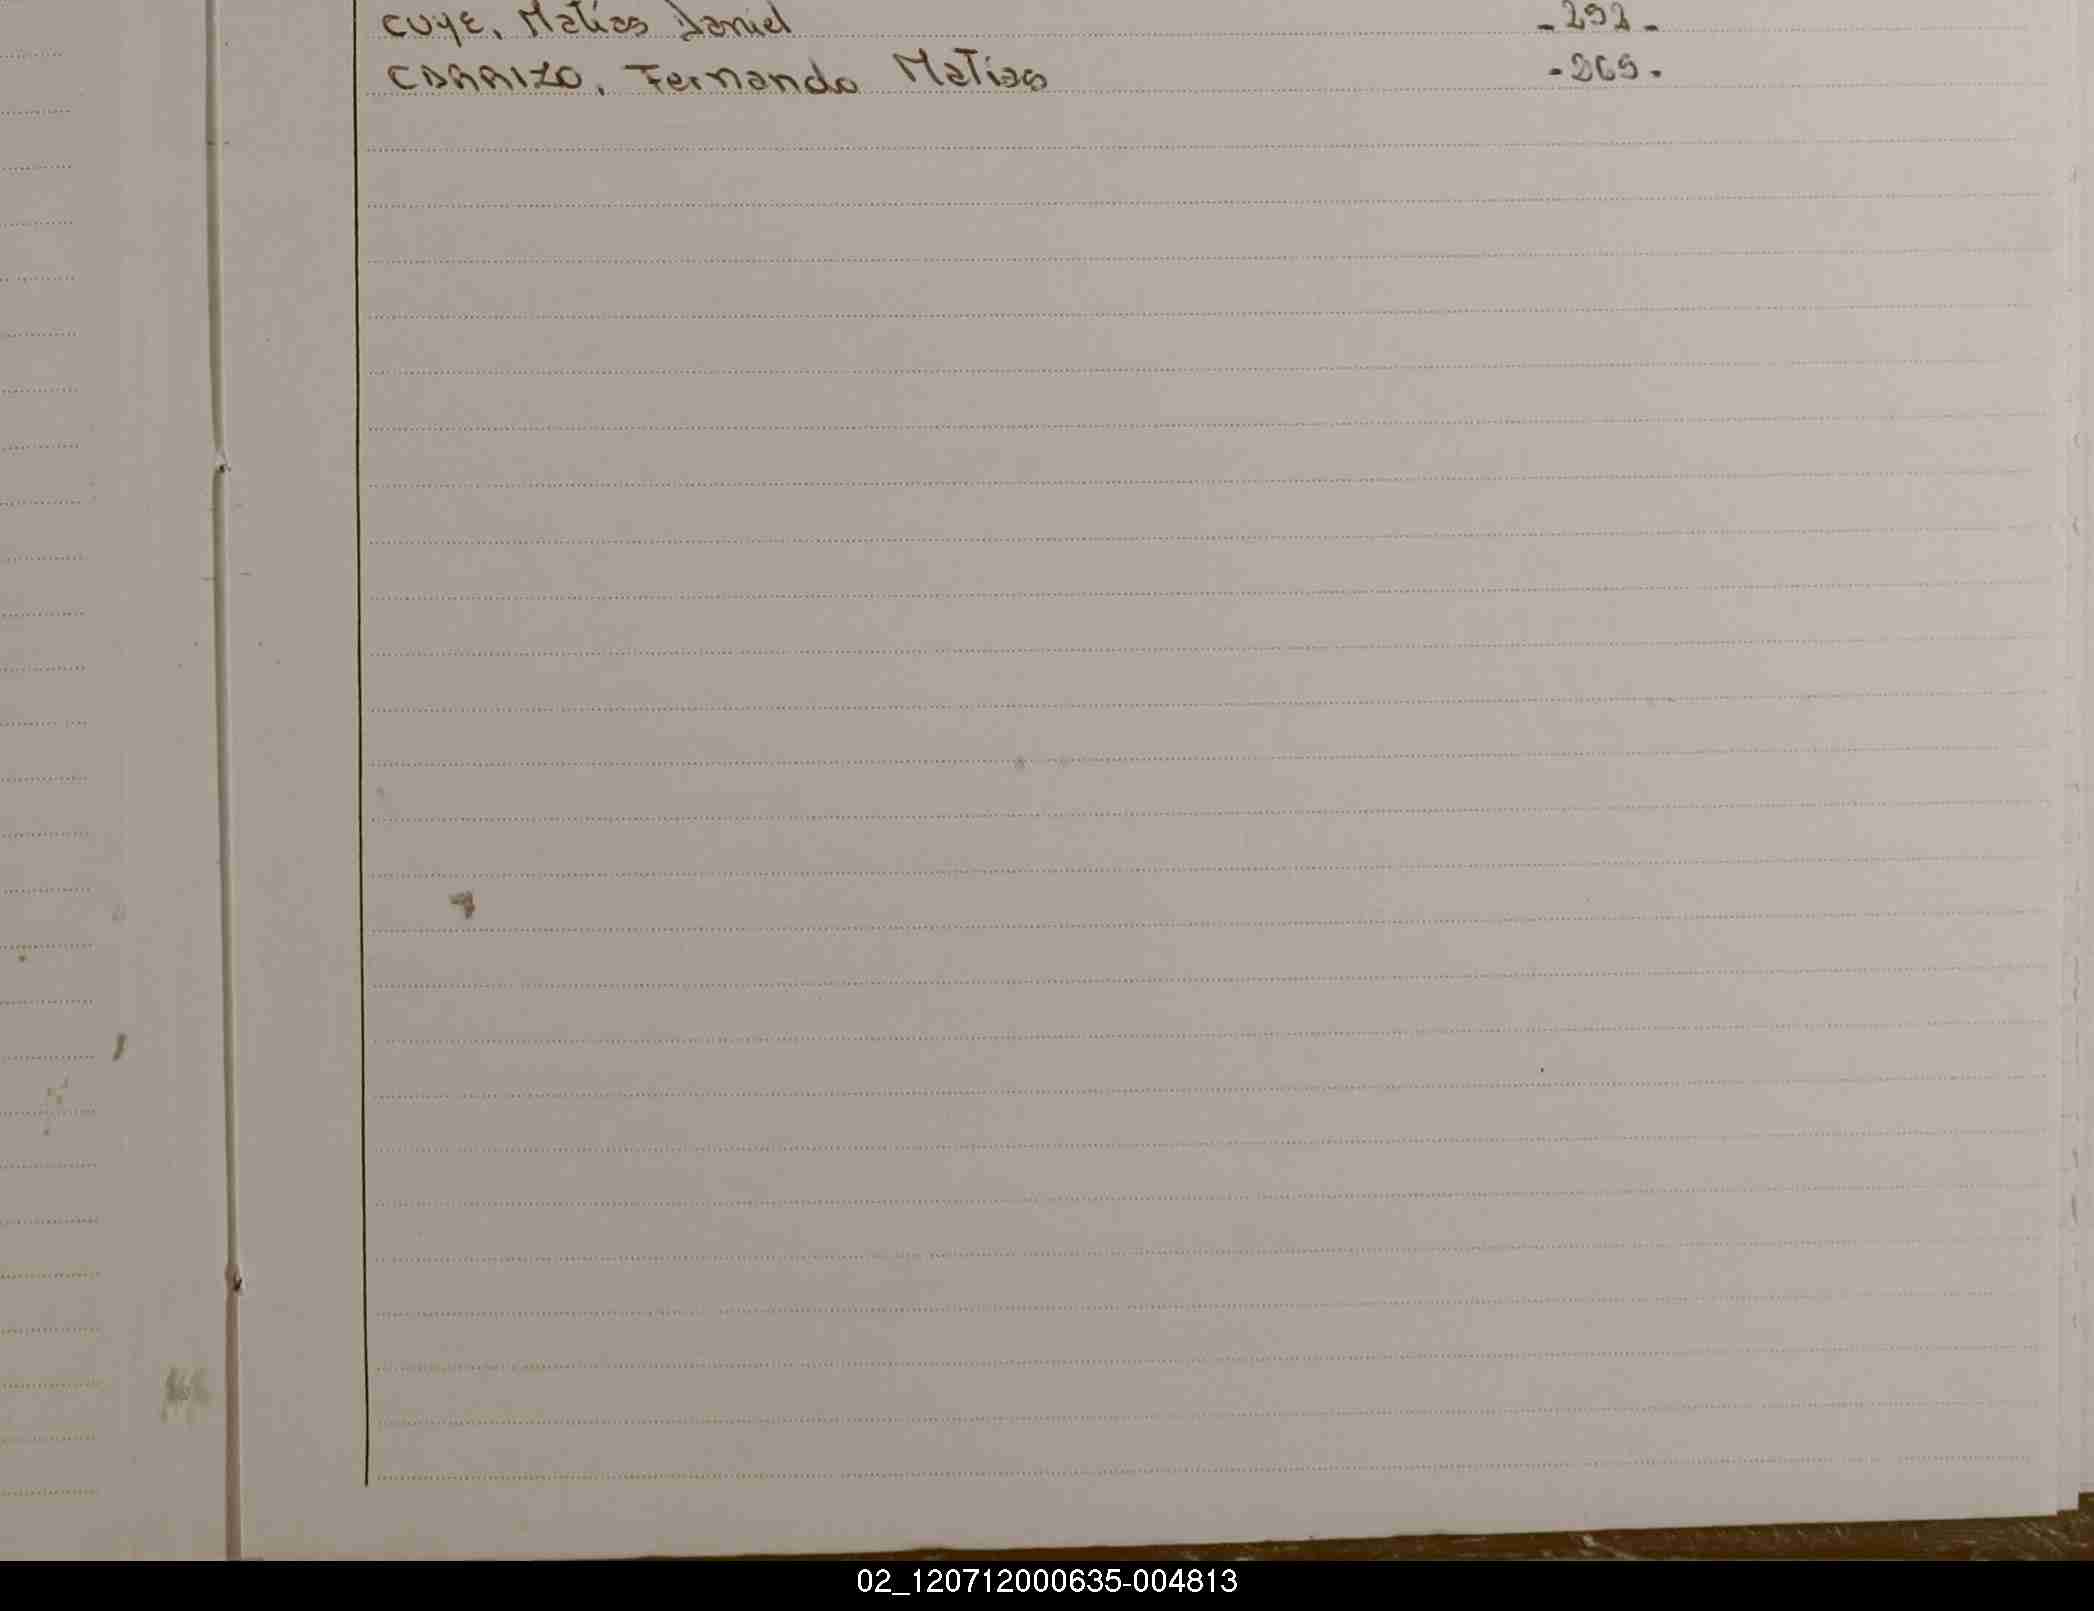 CUYE, Matias Daniel -292-
CARRIZO, Fernando Matias -269-
02_120712000635-004813